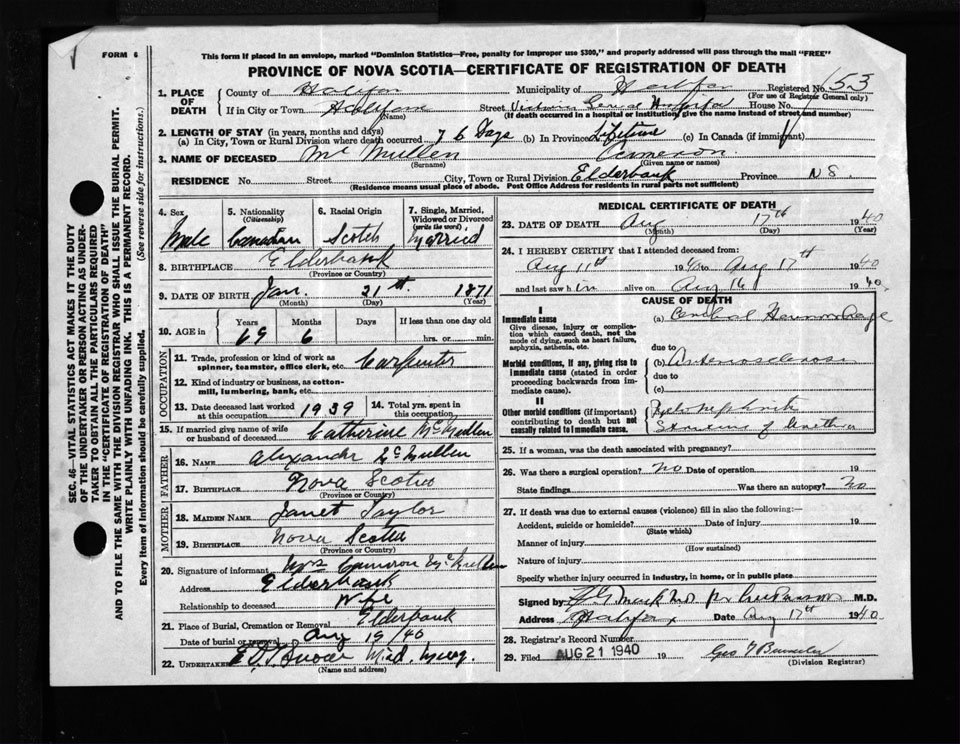 FORM 6
This form if placed in an envelope, marked "Dominion Statistics—Free, penalty for improper use $300," and properly addressed will pass through the mail "FREE"
PROVINCE OF NOVA SCOTIA—CERTIFICATE OF REGISTRATION OF DEATH
1. PLACE OF DEATH
County of Halifax Municipality of Halifax Registered No. 153
(For use of Registrar General only)
If in City or Town Halifax Street Victoria General Hospital House No.
(Name) (If death occurred in a hospital or institution, give the name instead of street and number)
2. LENGTH OF STAY (in years, months and days)
(a) In City, Town or Rural Division where death occurred 76 Days (b) In Province Lifetime (c) In Canada (if immigrant)
3. NAME OF DECEASED McMullen Cameron
(Surname) (Given name or names)
RESIDENCE No. Street City, Town or Rural Division Elderbank Province N S.
(Residence means usual place of abode. Post Office Address for residents in rural parts not sufficient)
SEC. 46—VITAL STATISTICS ACT MAKES IT THE DUTY
OF THE UNDERTAKER OR PERSON ACTING AS UNDER-
TAKER TO OBTAIN ALL THE PARTICULARS REQUIRED
IN THE "CERTIFICATE OF REGISTRATION OF DEATH"
AND TO FILE THE SAME WITH THE DIVISION REGISTRAR WHO SHALL ISSUE THE BURIAL PERMIT.
WRITE PLAINLY WITH UNFADING INK. THIS IS A PERMANENT RECORD.
Every item of Information should be carefully supplied. (See reverse side for instructions.)
4. Sex
Male
5. Nationality
(Citizenship)
Canadian
6. Racial Origin
Scotch
7. Single, Married,
Widowed or Divorced
(write the word)
Married
8. BIRTHPLACE Elderbank
(Province or Country)
9. DATE OF BIRTH Jan. 21st. 1871
(Month) (Day) (Year)
10. AGE in Years Months Days If less than one day
69 6 hrs. or min.
OCCUPATION
11. Trade, profession or kind of work as
spinner, teamster, office clerk, etc. Carpenter
12. Kind of industry or business, as cotton-
mill, lumbering, bank, etc.
13. Date deceased last worked
at this occupation 1939
14. Total yrs. spent in
this occupation
15. If married give name of wife
or husband of deceased Catherine McMullen
FATHER
16. NAME Alexander McMullen
17. BIRTHPLACE Nova Scotia
(Province or Country)
MOTHER
18. MAIDEN NAME Janet Taylor
19. BIRTHPLACE Nova Scotia
(Province or Country)
20. Signature of informant Mrs Cameron McMullen
Address Elderbank
Relationship to deceased Wife
21. Place of Burial, Cremation or Removal Elderbank
Date of burial or removal Aug 19/40
22. UNDERTAKER Mid. Musq.
(Name and address)
MEDICAL CERTIFICATE OF DEATH
23. DATE OF DEATH Aug 17th 1940
(Month) (Day) (Year)
24. I HEREBY CERTIFY that I attended deceased from:
Aug 11th 1940 to Aug 17th 1940
and last saw h im alive on Aug 16 1940.
CAUSE OF DEATH
I
Immediate cause
Give disease, injury or complica-
tion which caused death, not the
mode of dying, such as heart failure,
asphyxia, asthenia, etc.
(a) Cerebral Hemorrhage
due to
Morbid conditions, if any, giving rise to
immediate cause (stated in order
proceeding backwards from im-
mediate cause).
(b) Arteriosclerosis
due to
(c)
II
Other morbid conditions (if important)
contributing to death but not
causally related to immediate cause.
Pyelonephritis
Stricture of Urethra
25. If a woman, was the death associated with pregnancy?
26. Was there a surgical operation? No Date of operation 19
State findings Was there an autopsy? No
27. If death was due to external causes (violence) fill in also the following:—
Accident, suicide or homicide? Date of injury 19
(State which)
Manner of injury
(How sustained)
Nature of injury
Specify whether injury occurred in industry, in home, or in public place
Signed by M.D.
Address Halifax Date Aug 17th 1940
28. Registrar's Record Number
29. Filed AUG 21 1940 19 Geo
(Division Registrar)